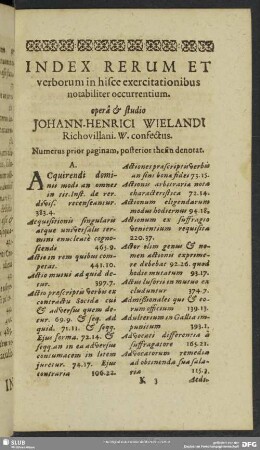 INDEX RERUM ET
verborum in hisce exercitationibus
notabiliter occurrentium.
operâ & studio
JOHANN-HENRICI WIELANDI
Richovillani. W. confectus.
Numerus prior paginam, posterior thesin denotat.
A.
Acquirendi domi-
nii modi an omnes
in tit. Inst. de rer.
divis. recenseantur.
383.4.
Acquisitionis singularis
atque universalis ter-
mini enucleatè cogno-
scendi 465.9.
Actio in rem quibus com-
petat. 441.10.
Actio mutui ad quid de-
tur. 397.7.
Actio praescriptis verbis ex
contractu Socida cui
& adversus quem de-
tur. 69.9. & seq. Ad
quid. 71.11. & seqq.
Ejus forma. 72.14. &
seqq. an in ea adversus
contumacem in litem
juretur. 74.17. Ejus
contraria 106.22.
Actiones praescriptis verbis
an sint bona fidei 73.15.
Actionis arbitraria nota
characteristica 72.14.
Actionum eligendarum
modus hodiernus 94.18.
Actionum ex suffragio
venientium requisita
220.37.
Actor olim genus & no-
men actionis exprime-
re debebat 92.16. quod
hodie mutatum 93.17.
Actus lusorii in mutuo ex-
cluduntur 374.7.
Admissionales qui & eo-
rum officium 139.13.
Adulterium in Gallia im-
punitum 393.1.
Advocati differentia à
suffragatore 165.21.
Advocatorum remedia
ad obtinenda sua sala-
ria 115.3.
K 3 Aedi-
SLUB
DFG